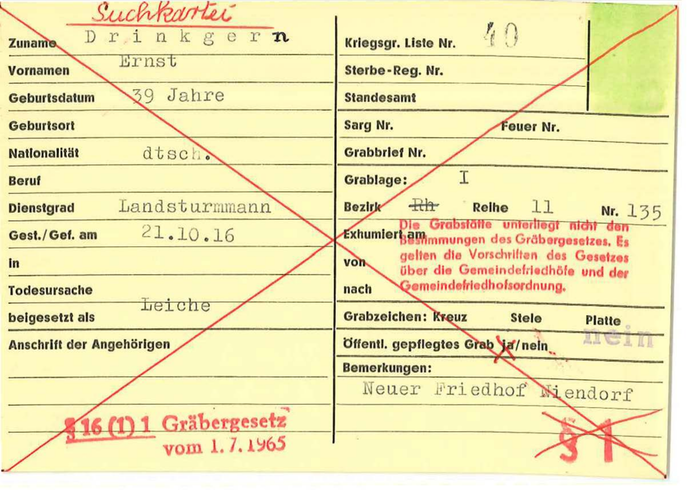 Suchkartei
Zuname Drinkgern
Vornamen Ernst
Geburtsdatum 39 Jahre
Geburtsort
Nationalität dtsch.
Beruf
Dienstgrad Landsturmmann
Gest./Gef. am 21.10.16
in
Todesursache
beigesetzt als Leiche
Anschrift der Angehörigen
§ 16 (1) 1 Gräbergesetz
vom 1.7.1965
Kriegsgr. Liste Nr. 40
Sterbe-Reg. Nr.
Standesamt
Sarg Nr. Feuer Nr.
Grabbrief Nr.
Grablage: I
Bezirk Rh Reihe 11 Nr. 135
Exhumiert am
von
nach
Die Grabstätte unterliegt nicht den
Bestimmungen des Gräbergesetzes. Es
gelten die Vorschriften des Gesetzes
über die Gemeindefriedhöfe und der
Gemeindefriedhofsordnung.
Grabzeichen: Kreuz Stele Platte
Öffentl. gepflegtes Grab ja/nein nein
Bemerkungen:
Neuer Friedhof Niendorf
§ 1